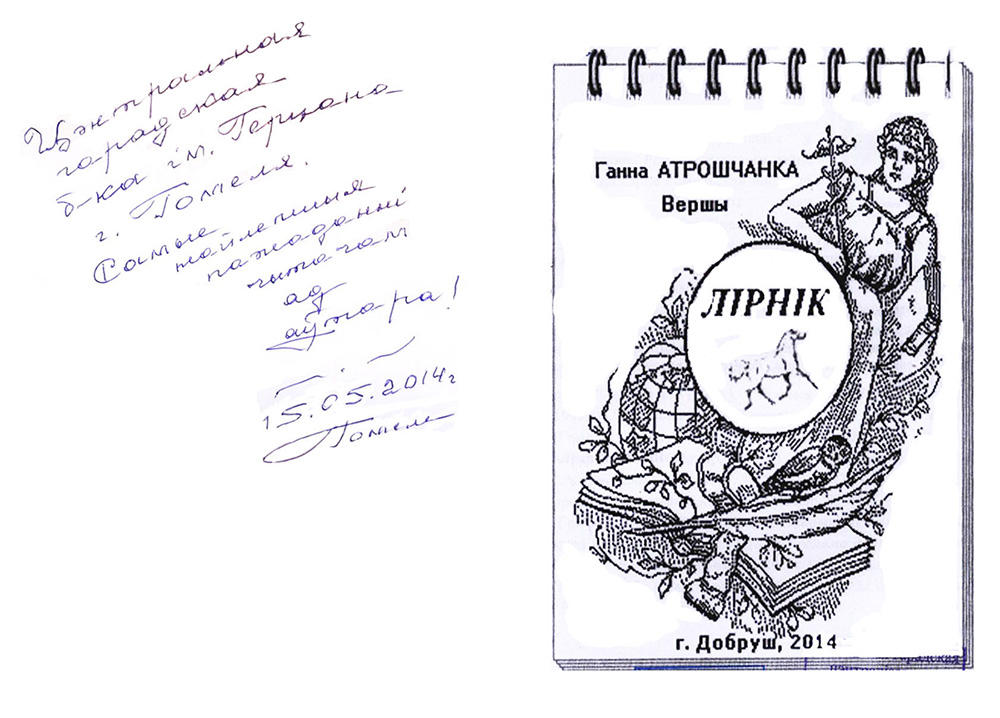 Цэнтральная
гарадская
б-ка ім. Герцэна
г. Гомеля.
Самыя
найлепшыя
пажаданні
чытачам
ад
аўтара!
15.05.2014г
Гомель
Ганна АТРОШЧАНКА
Вершы
ЛІРНІК
г. Добруш, 2014